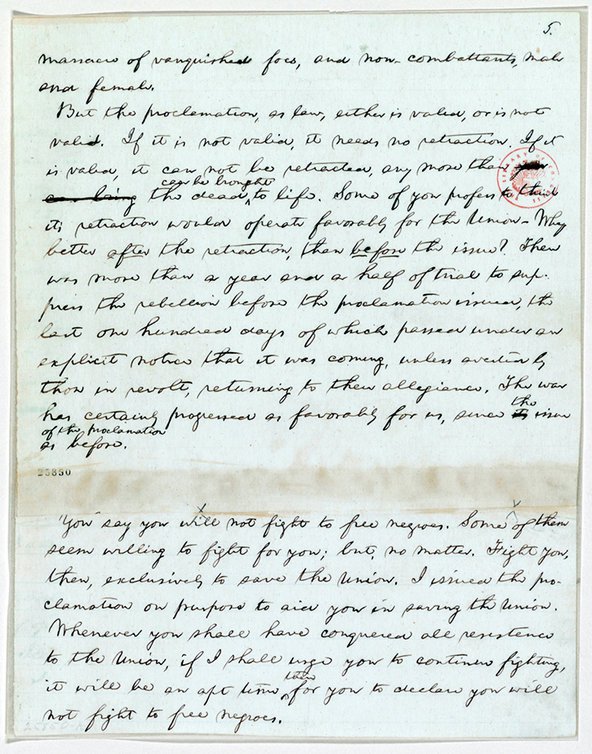 5.
massacre of vanquished foes, and non-combattants, male
and female.
But the proclamation, as law, either is valid, or is not
valid. If it is not valid, it needs no retraction. If it
is valid, it can not be retracted, any more than
can be brought
the dead to life. Some of you profess to think
its retraction would operate favorably for the Union - Why
better after the retraction, than before the issue? There
was more than a year and a half of trial to sup-
press the rebellion before the proclamation issued, the
last one hundred days of which passed under an
explicit notice that it was coming, unless averted by
those in revolt, returning to their allegiance. The war
the
has certainly progressed as favorably for us, since its issue
of the proclamation
as before.
23850
You say you will not fight to free negroes. Some of them
seem willing to fight for you; but, no matter. Fight you,
then, exclusively to save the Union. I issued the pro-
clamation on purpose to aid you in saving the Union.
Whenever you shall have conquered all resistence
to the Union, if I shall urge you to continue fighting,
then
it will be an apt time for you to declare you will
not fight to free negroes.